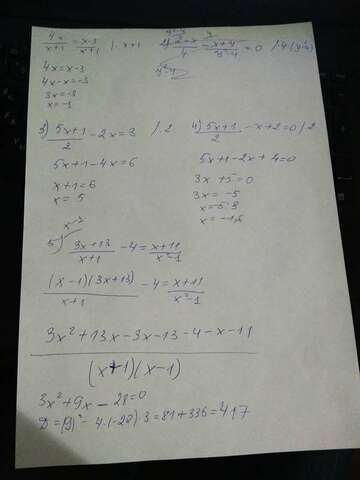 4x/x+1 = x-3/x+1 /·x+1
4x = x-3
4x-x = -3
3x = -3
x = -1
= x+4/y²-4 = 0 /·4(y²-4)
3) 5x+1/2 - 2x = 3 /·2
5x+1-4x = 6
x+1 = 6
x = 5
4) 5x+1/2 - x+2 = 0 /·2
5x+1-2x+4 = 0
3x+5 = 0
3x = -5
x = -5:3
x = -1,6
5) 3x+13/x+1 - 4 = x+11/x²-1
(x-1)(3x+13)/x+1 - 4 = x+11/x²-1
3x²+13x-3x-13-4-x-11
(x+1)(x-1)
3x²+9x-28=0
D=(9)²-4·(-28)·3=81+336=417